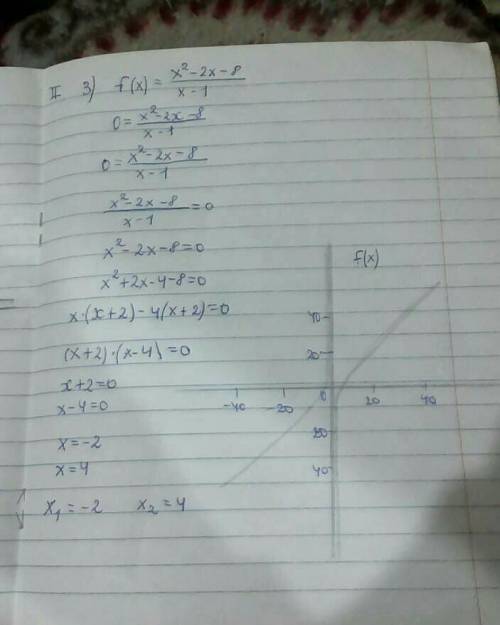 II 3) f(x) = x²-2x-8 / x-1
0 = x²-2x-8 / x-1
0 = x²-2x-8 / x-1
x²-2x-8 / x-1 = 0
x²-2x-8=0
x²+2x-4-8=0
x·(x+2)-4(x+2)=0
(x+2)·(x-4)=0
x+2=0
x-4=0
x=-2
x=4
x₁=-2 x₂=4
f(x)
40
20
-40 -20 0 20 40
20
40